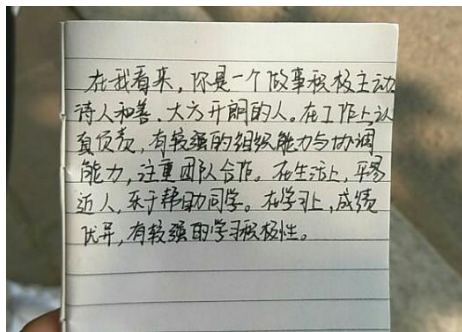 在我看来，你是一个做事积极主动
待人和善、大方开朗的人。在工作上，认
真负责，有较强的组织能力与协调
能力，注重团队合作。在生活上，平易
近人，乐于帮助同学。在学习上，成绩
优异，有较强的学习积极性。